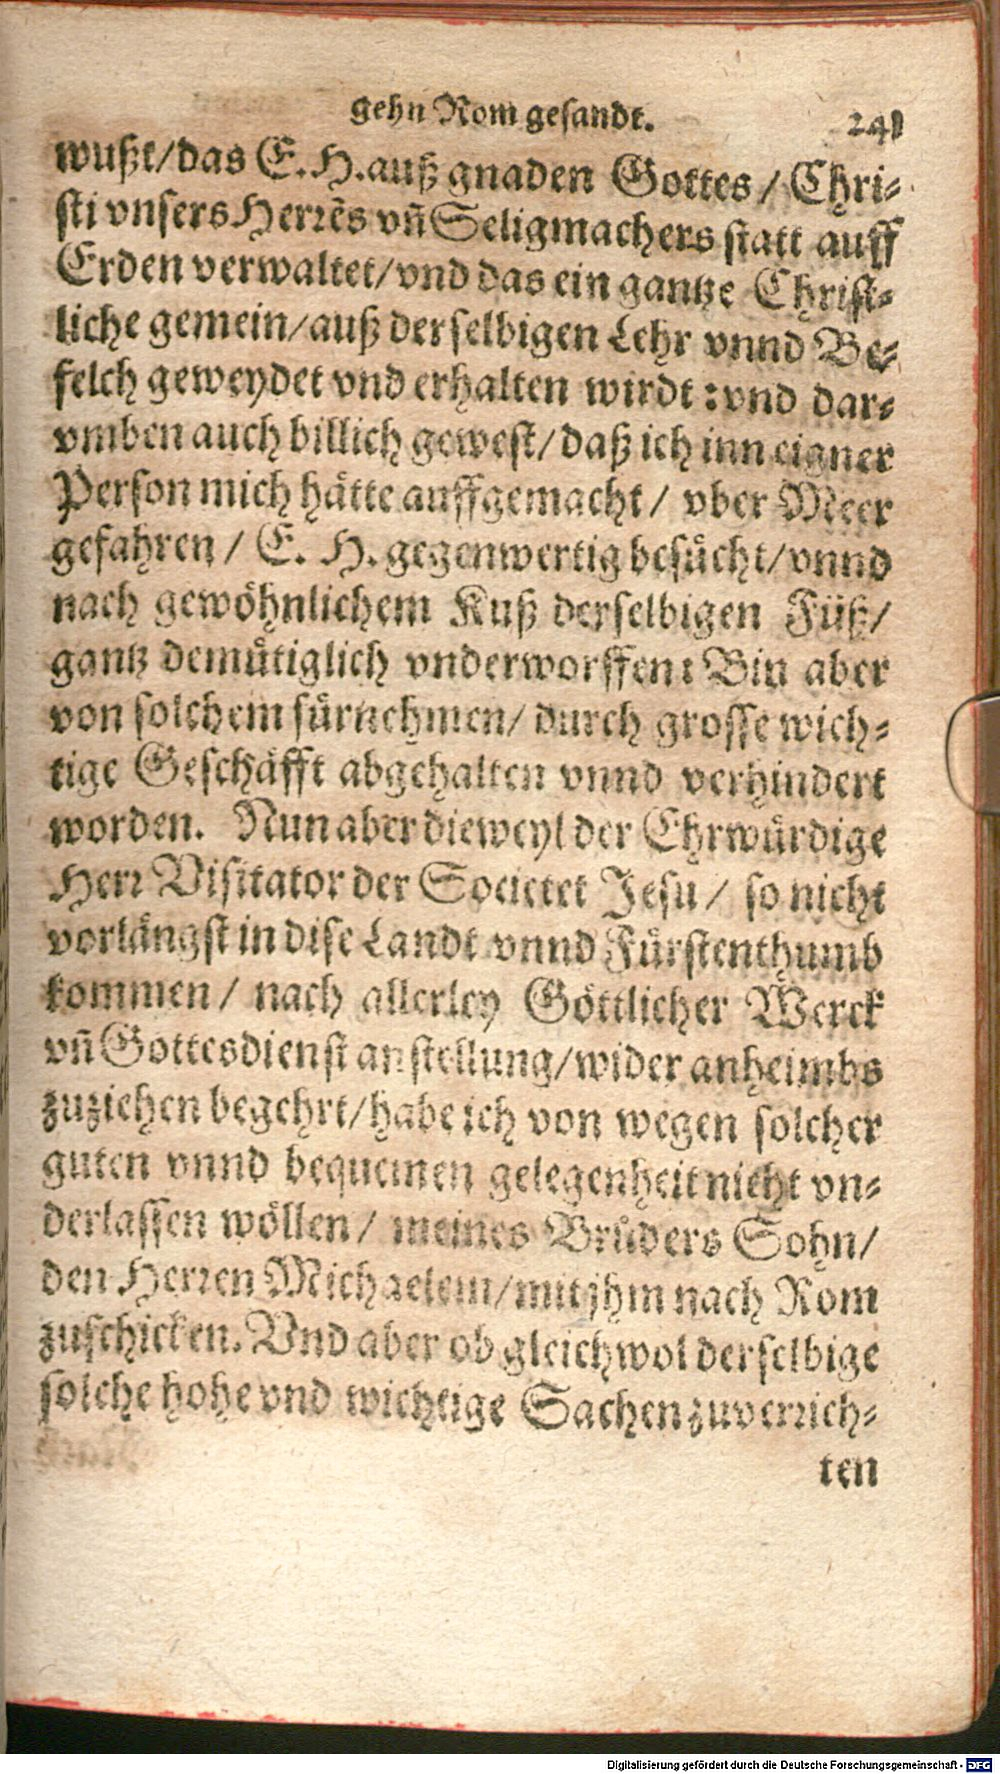 gehn Rom gesandt. 241
wußt/das E. H. auß gnaden Gottes / Chri-
sti vnsers Herrẽs vñ Seligmachers statt auff
Erden verwaltet/vnd das ein gantze Christ-
liche gemein/auß derselbigen Lehr vnnd Be-
felch geweydet vnd erhalten wirdt : vnd dar-
vmben auch billich gewest/daß ich inn eigner
Person mich hätte auffgemacht / vber Meer
gefahren / E. H. gegenwertig besůcht/vnnd
nach gewöhnlichem Kuß derselbigen Füß/
gantz demůtiglich vnderworffen : Bin aber
von solchem fürnehmen/ durch grosse wich-
tige Geschäfft abgehalten vnnd verhindert
worden. Nun aber dieweyl der Ehrwürdige
Herr Visitator der Societet Jesu / so nicht
vorlängst in dise Landt vnnd Fürstenthumb
kommen / nach allerley Göttlicher Werck
vñ Gottesdienst anstellung/wider anheimbs
zuziehen begehrt/habe ich von wegen solcher
guten vnnd bequemen gelegenheit nicht vn-
derlassen wöllen / meines Brůders Sohn/
den Herren Michaelem/mit jhm nach Rom
zuschicken. Vnd aber ob gleichwol derselbige
solche hohe vnd wichtige Sachen zuverrich-
ten
Digitalisierung gefördert durch die Deutsche Forschungsgemeinschaft - DFG